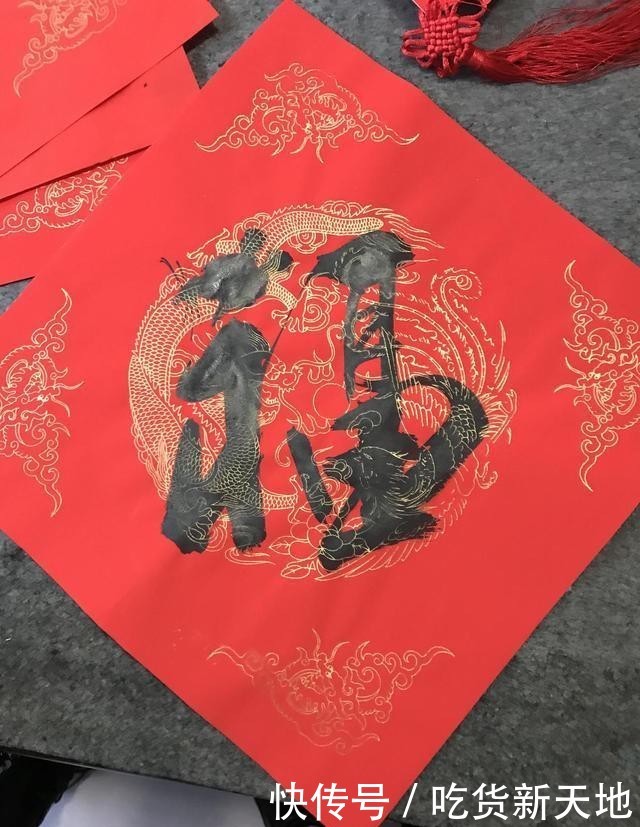 福
快传号／吃货新天地